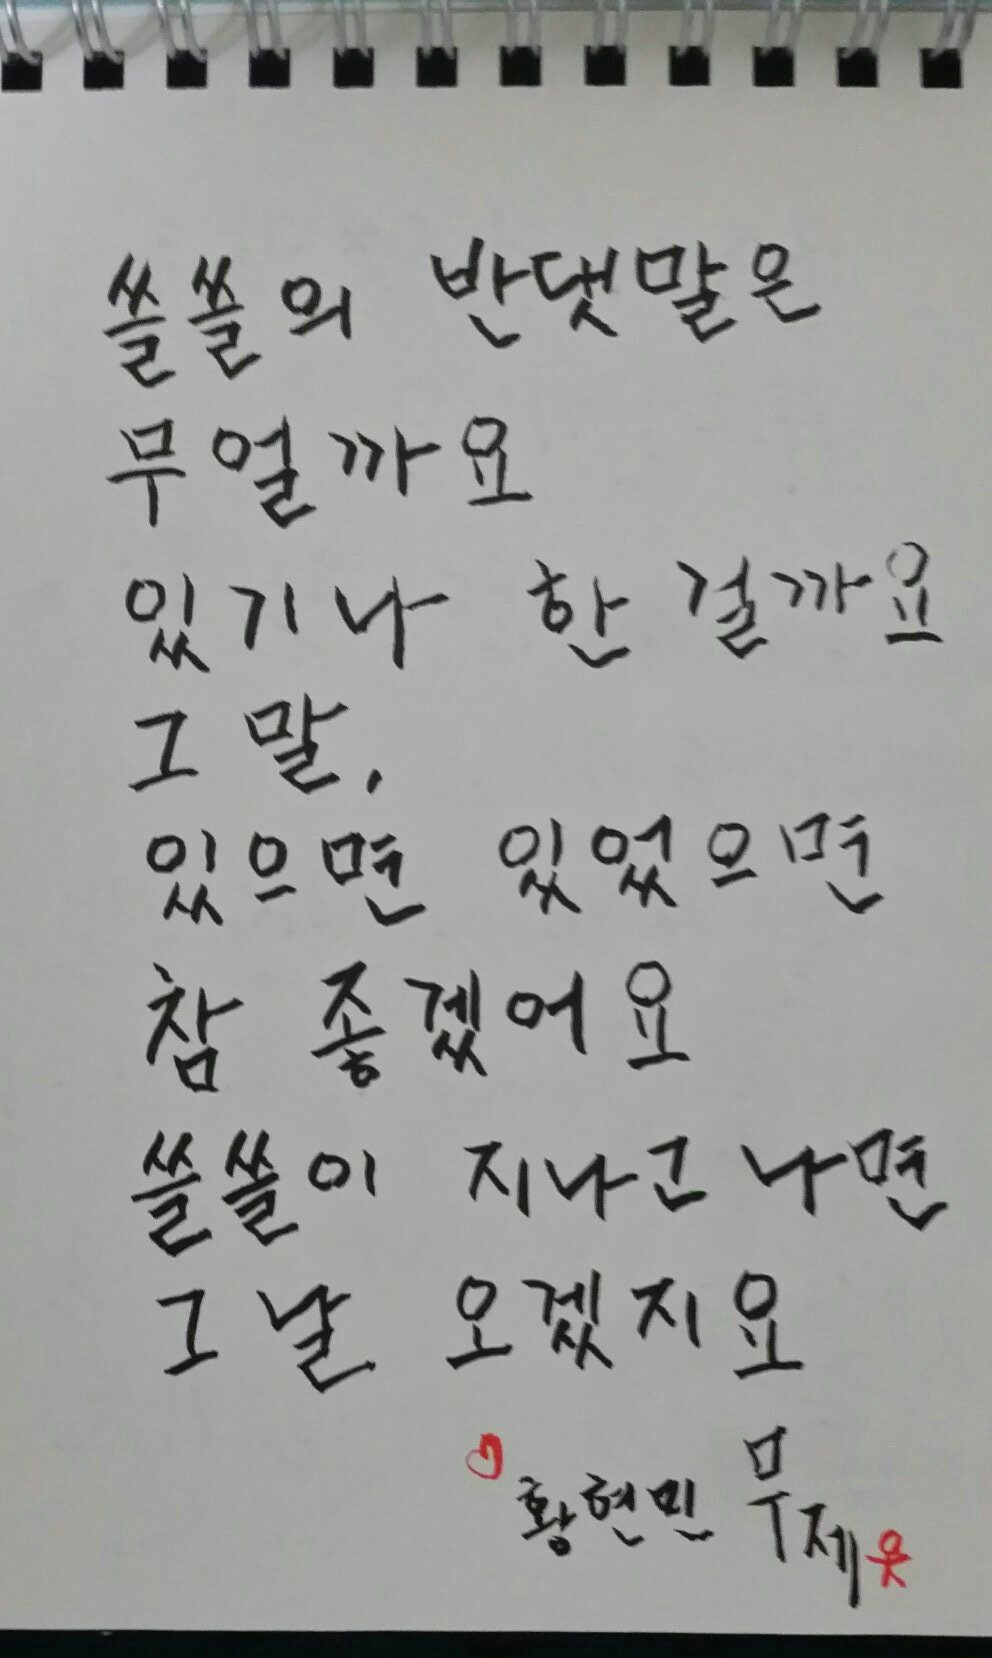 쓸쓸의 반댓말은
무얼까요
있기나 한 걸까요
그 말,
있으면 있었으면
참 좋겠어요
쓸쓸이 지나고 나면
그 날 오겠지요
황현민 무제
웃